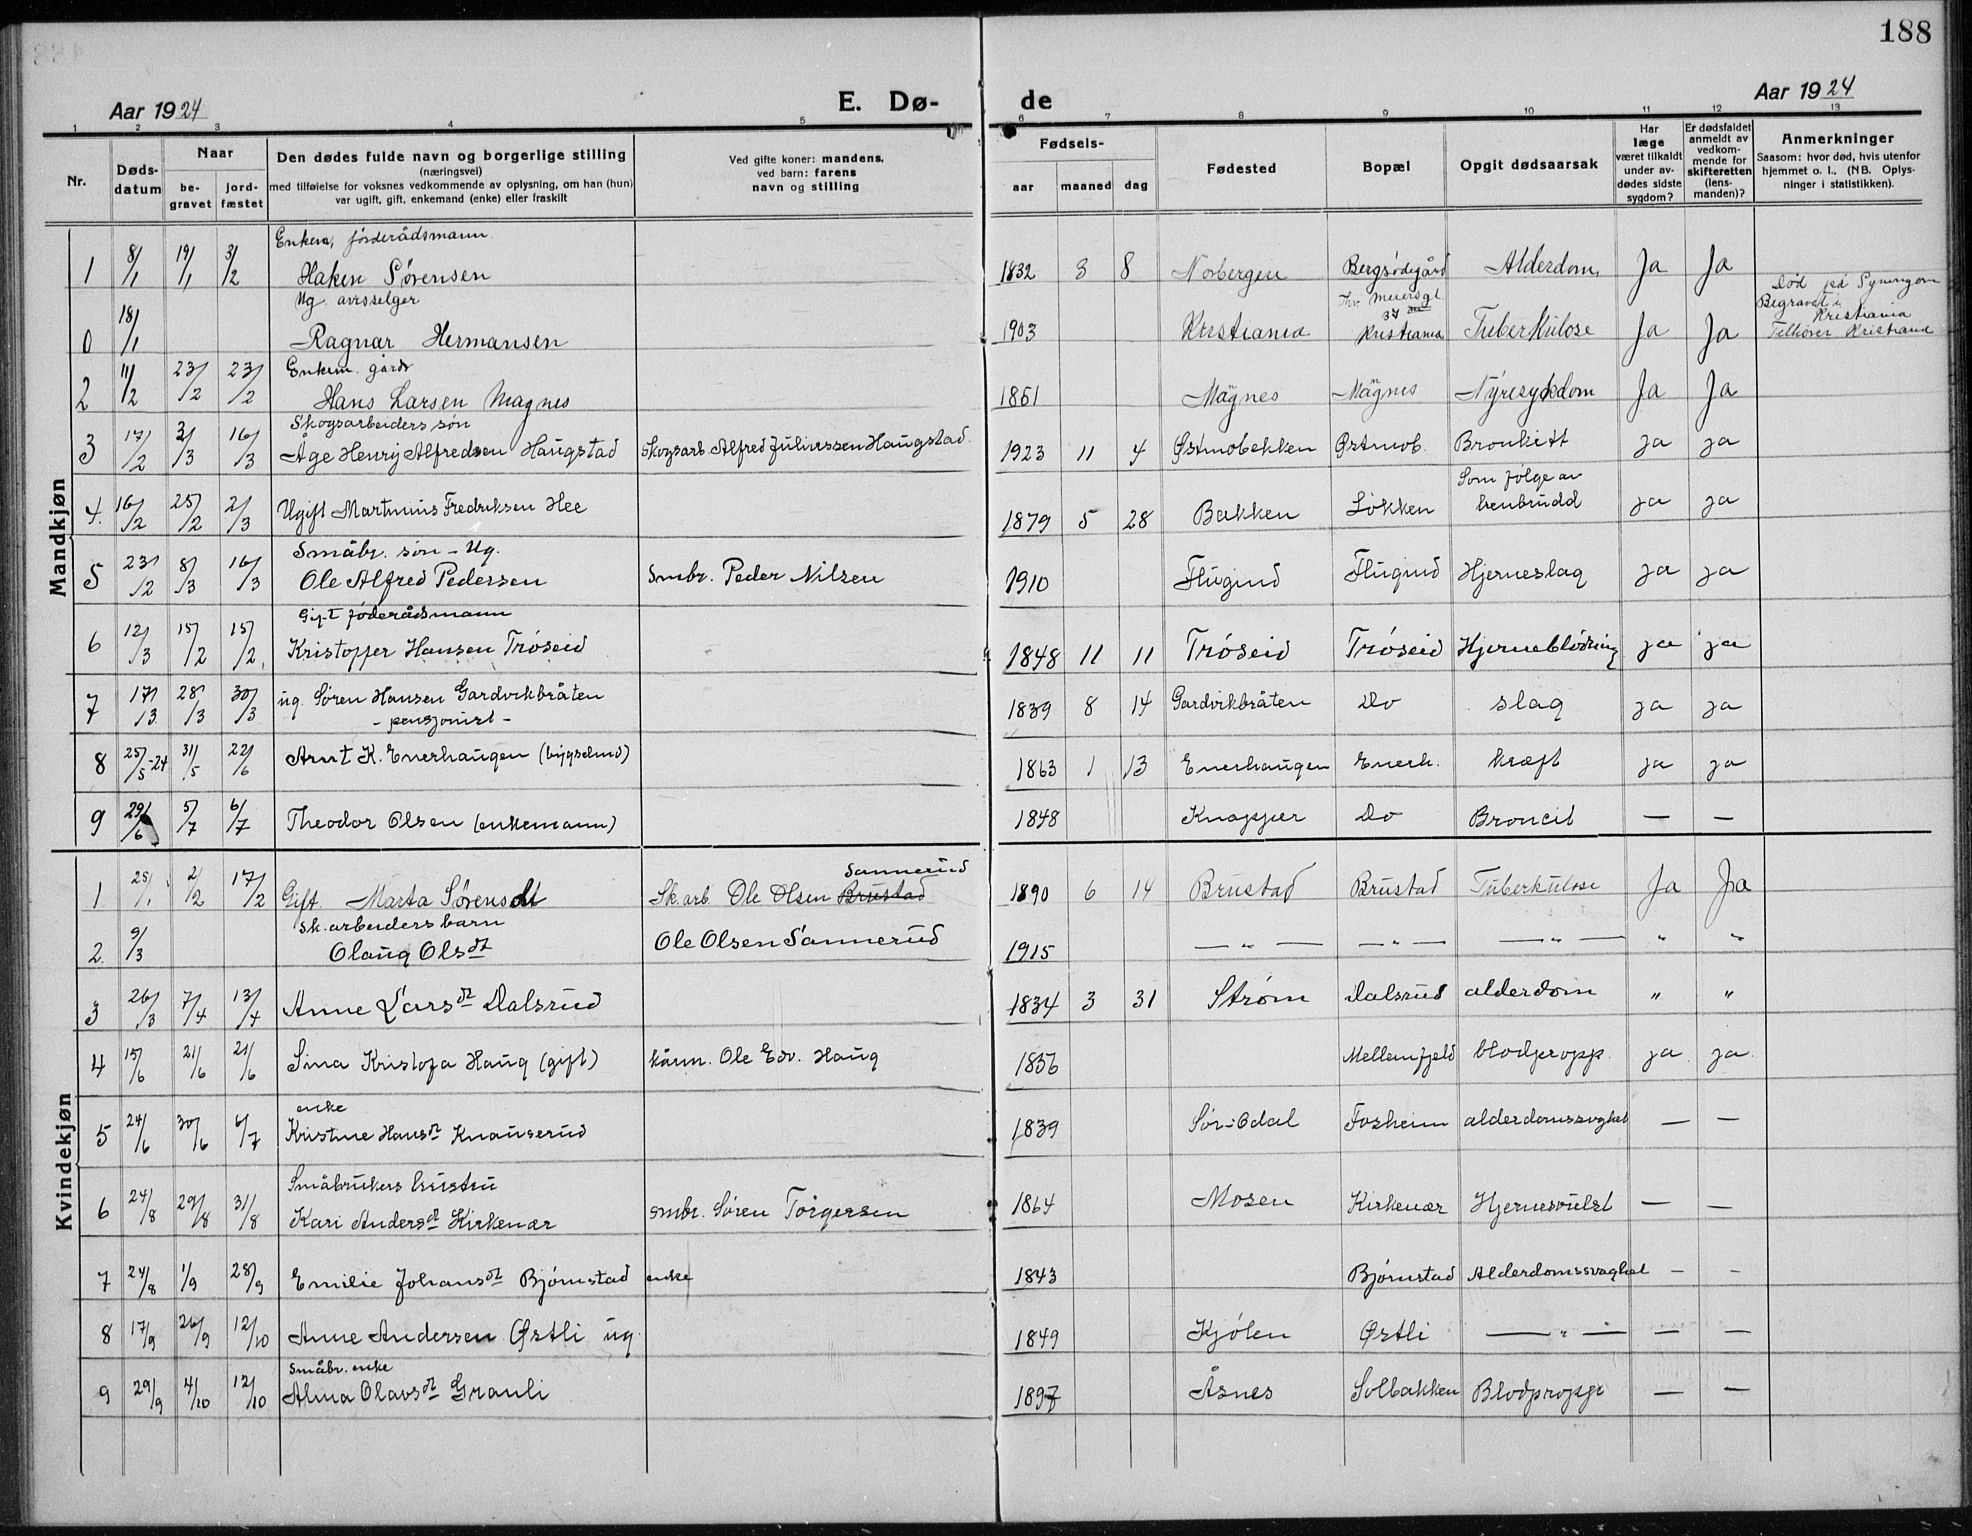 188
Aar 1924
E. Dø-
de
Aar 1924
1 2 3 4 5 6 7 8 9 10 11 12 13
Nr.
Døds-
datum
Naar
be-
gravet
jord-
fæstet
Den dødes fulde navn og borgerlige stilling
(næringsvei)
med tilføielse for voksnes vedkommende av oplysning, om han (hun)
var ugift, gift, enkemand (enke) eller fraskilt
Ved gifte koner: mandens,
ved barn: farens
navn og stilling
Fødsels-
aar maaned dag
Fødested
Bopæl
Opgit dødsaarsak
Har
læge
været tilkaldt
under av-
dødes sidste
sygdom?
Er dødsfaldet
anmeldt av
vedkom-
mende for
skifteretten
(lens-
manden)?
Anmerkninger
Saasom: hvor død, hvis utenfor
hjemmet o. l., (NB. Oplys-
ninger i statistikken).
Mandkjøn
Enkem, föderådsmann
1 8/1 19/1 3/2 Haken Sørensen 1832 3 8 Norbergen Bergsødegård Alderdom, Ja Ja
Ug. avisselger
Thv. Meiersgt.
37
Død på
Begravet i
Kristiania
0 18/1 Ragnar Hermansen 1903 Kristiania Kristiania Tuberkulose Ja Ja Tilhører Kristiania
Enkem. gårdr
2 11/2 23/2 23/2 Hans Larsen Magnes 1851 Mägnes Mägnes Nyresykdom Ja Ja
Skogsarbeiders søn
3 17/2 2/3 16/3 Åge Henry Alfredsen Haugstad Skogsarb. Alfred Juliussen Haugstad. 1923 11 4 Østmobekken Østmob. Bronkitt ja ja
Som følge av
4. 16/2 25/2 2/3 Ugift Martinius Fredriksen Hee 1879 5 28 Bakken Løkken benbrudd ja ja
Småbr. søn - Ug.
5 23/2 8/3 16/3 Ole Alfred Pedersen Smbr. Peder Nilsen 1910 Flugind Flugind Hjerneslag ja ja
Gift föderådsmann
6 12/3 15/2 15/2 Kristoffer Hansen Tröseid 1848 11 11 Tröseid Tröseid Hjerneblödning ja ja
7 17/3 28/3 30/3 ug. Søren Hansen Gardvikbråten 1839 8 14 Gardvikbråten Do slag ja ja
- pensjonist -
8 25/5-24 31/5 22/6 Arnt K. Enerhaugen (bygselmd) 1863 1 13 Enerhaugen Enerh. kræft ja ja
9 29/6 5/7 6/7 Theodor Olsen (enkemann) 1848 Knapper Do Broncit — —
Kvindekjøn
Sannerud
1 25/1 2/2 17/2 Gift. Marta Sørensdt Sk.arb. Ole Olsen Brustad 1890 6 14 Brustad Brustad Tuberkulose Ja Ja
Sk.arbeiders barn
2. 9/3 Olaug Olsdt Ole Olsen Sannerud 1915 — " — — " — — " — " "
3 26/3 7/4 13/4 Anne Larsdt Dalsrud 1834 3 31 Strøm Dalsrud alderdom " "
4 15/6 21/6 21/6 Sina Kristofa Haug (gift) kårm. Ole Edv. Haug 1836 Mellemfjeld blodpropp. ja ja.
enke
5 24/6 30/6 6/7 Kristine Hansdt Knauserud 1839 Sør-Odal Fosheim alderdomssvaghet — —
Småbrukers hustru
6 24/8 29/8 31/8 Kari Andersdt Kirkenær smbr. Søren Torgersen 1864 Mosen Kirkenær Hjernesvulst — —
7 24/8 1/9 28/9 Emilie Johansdt Bjørnstad enke 1843 Bjørnstad Alderdomssvaghet — —
8 17/9 26/9 12/10 Anne Andersen Østli ug. 1849 Kjölen Østli — " — — —
Småbr. enke
9 29/9 4/10 12/10 Alma Olavsdt Granli 1897 Åsnes Solbakken Blodpropp — —